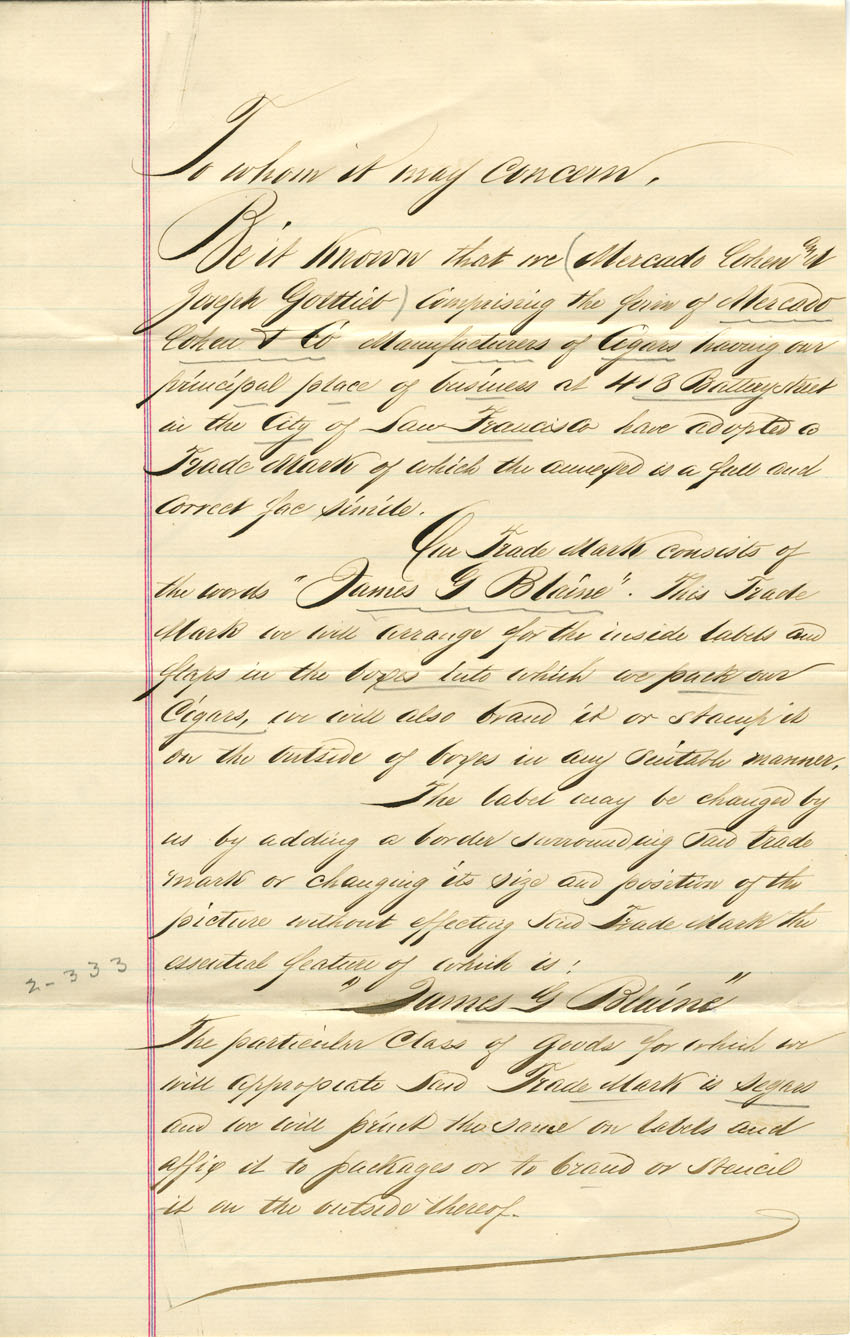 To whom it may concern,
Be it Known that we (Mercado Cohen and
Joseph Gottlieb) comprising the firm of Mercado
Cohen & Co Manufacturers of Cigars having our
principal place of business at 418 Battery street
in the City of San Francisco have adopted a
Trade Mark of which the annexed is a full and
correct fac simile.
Our Trade Mark consists of
the words "James G Blaine". This Trade
Mark we will arrange for the inside labels and
flaps in the boxes into which we pack our
Cigars, we will also brand it or stamp it
on the outside of boxes in any suitable manner.
The label may be changed by
us by adding a border surrounding said trade
mark or changing its size and position of the
picture without effecting said Trade Mark the
essential feature of which is:
2-333
"James G Blaine"
The particular Class of Goods for which we
will appropiate said Trade Mark is segars
and we will print the same on labels and
affix it to packages or to brand or stencil
it on the outside thereof.